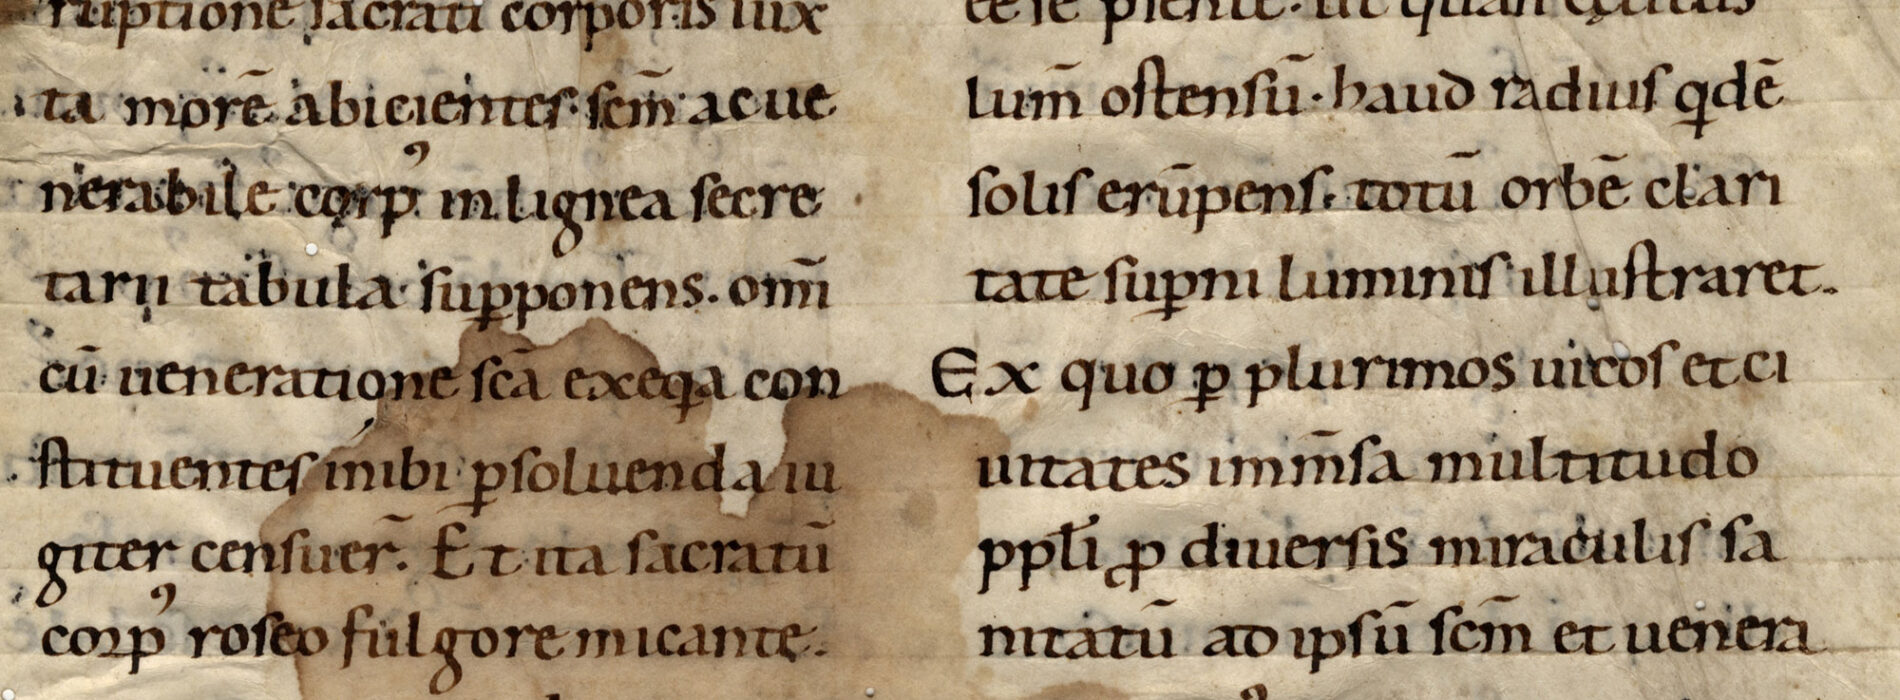 ruptione sacrati corporis iux
ta morē abicientes. scm̄ ac ue
nerabile corpꝰ in lignea secre
tarii tabula supponens. om̄i
cū ueneratione scā exeqa con
stituentes inibi ꝑsoluenda iu
giter censuer̄. Et ita sacratū
corpꝰ roseo fulgore micante.
lum̄ ostensū. haud radius qdē
solis erūpens. totū orbē clari
tate suꝑni luminis illustraret.
Ex quo ꝑ plurimos uicos et ci
uitates imm̄sa multitudo
ppłi ꝓ diuersis miraculis sa
nitatū ad ipsū scm̄ et uenera